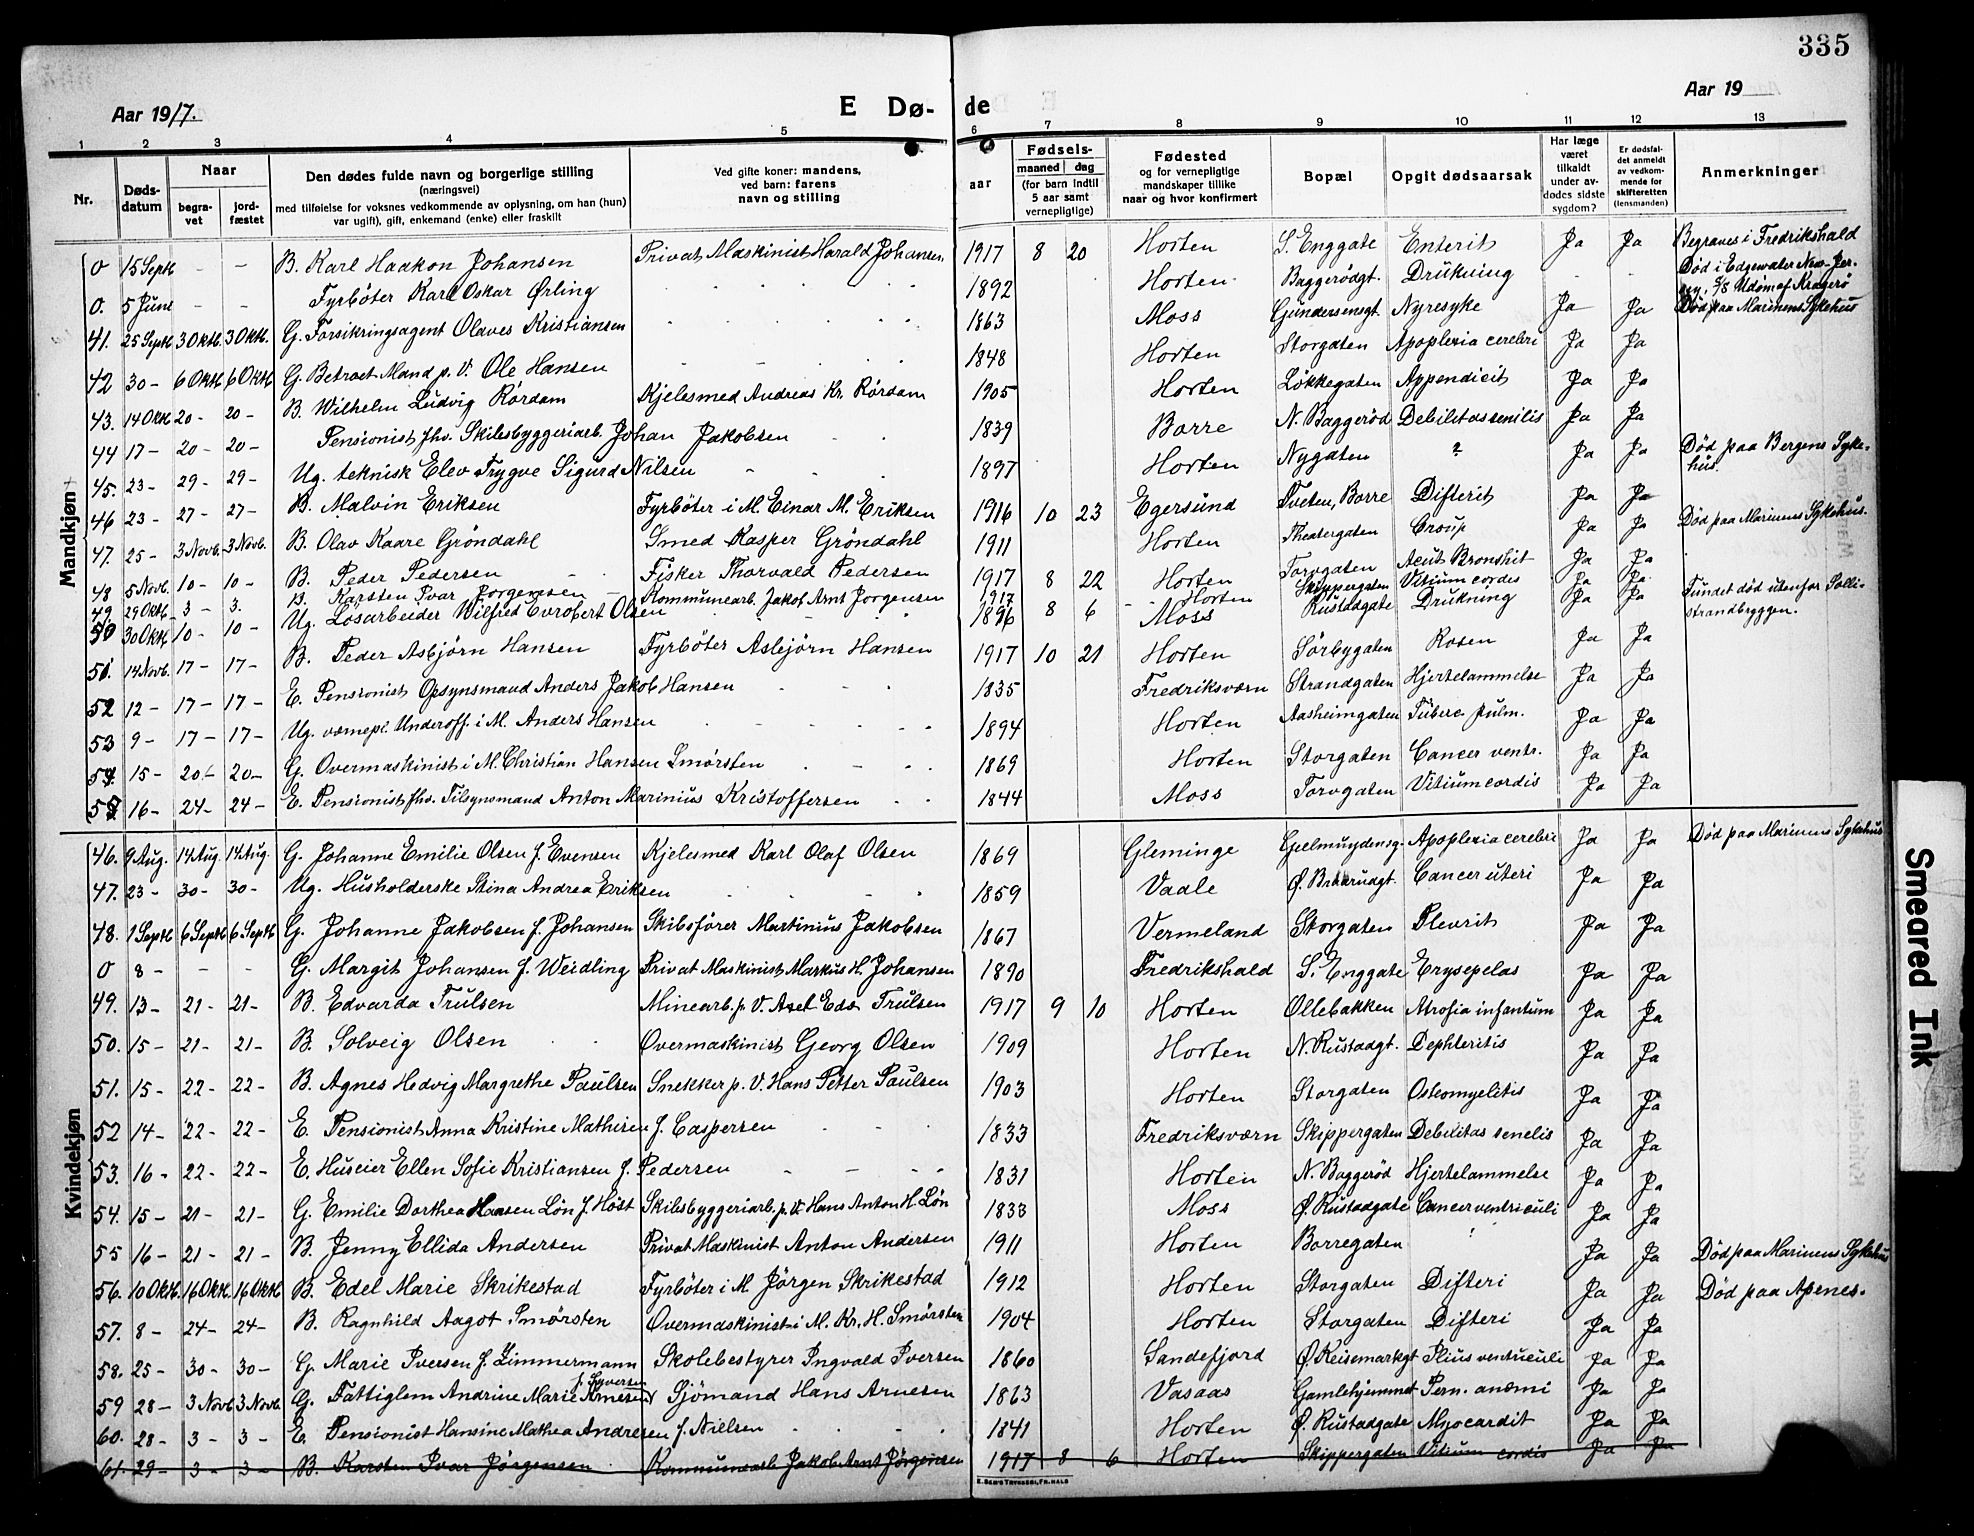 335
Aar 1917. E Dø- de Aar 19
1 2 3 4 5 6 7 8 9 10 11 12 13
Nr. Døds-datum Naar begra-vet jord-fæstet Den dødes fulde navn og borgerlige stilling (næringsvei) med tilføielse for voksnes vedkommende av oplysning, om han (hun) var ugift), gift, enkemand (enke) eller fraskilt Ved gifte koner: mandens, ved barn: farens navn og stilling aar Fødsels- maaned dag (for barn indtil 5 aar samt vernepligtige) Fødested og for vernepligtige mandskaper tillike naar og hvor konfirmert Bopæl Opgit dødsaarsak Har læge været tilkaldt under av-dødes sidste sygdom? Er dødsfal-det anmeldt av vedkom-mende for skifteretten (lensmanden) Anmerkninger
Mandkjøn
0 15 Septb - - B. Karl Haakon Johansen Privat Maskinist Harald Johansen 1917 8 20 Horten S. Enggate Enterit Ja Ja Begraves i Fredrikshald
0. 5 Juni - - Fyrbøter Karl Oskar Ørling 1892 Horten Baggerødgt. Drukning - - Død i Edgewater New-Jer-sey, Udom af Kragerø
41. 25 Septb 3 Oktb. 3 Oktb. G. Forsikringsagent Olaves Kristiansen 1863 Moss Gundersensgt. Nyresyke Ja Ja Død paa Marinens Sykehus
42 30 - 6 Oktb 6 Oktb G. Betroet Mand p. V. Ole Hansen 1848 Horten Storgaten Apoplexia cerebri Ja Ja
43. 14 Oktb 20 - 20 - B. Wilhelm Ludvig Rørdam Kjelesmed Andreas Kr. Rørdam 1905 Horten Løkkegaten Appendicit Ja Ja
44 17 - 20 - 20 - Pensionist fhv. Skibsbyggeriarb. Johan Jakobsen 1839 Borre N. Baggerød Debilitas senilis Ja Ja
45. 23 - 29 - 29 - Ug. teknisk Elev Trygve Sigurd Nilsen 1897 Horten Nygaten ? Ja Ja Død paa Bergens Syke-hus.
46 23 - 27 - 27 - B. Malvin Eriksen Fyrbøter i M. Einar M. Eriksen 1916 10 23 Egersund Tveten, Borre Difterit Ja Ja
47. 25 - 3 Novb. 3 Novb. B. Olav Kaare Gröndahl Smed Kasper Gröndahl 1911 Horten Theatergaten Croup Ja Ja Død paa Marinens Sykehus.
48 5 Novb. 10 - 10 - B. Peder Pedersen Fisker Thorvald Pedersen 1917 8 22 Horten Torvgaten Acut Bronshit Ja Ja
49. 29 Oktb. 3 - 3. B. Karsten Ivar Jorgensen Kommunearb. Jakob Arnt Jorgensen 1917 8 6 Horten Skippergaten Vitium cordis Ja Ja
50 30 Oktb 10 - 10 - Ug. Løsarbeider Wilfred Evrobert Olsen 1896 Moss Rustadgate Drukning Ja Ja Fundet død utenfor Solli-strandbryggen.
51. 14 Novb. 17 - 17 - B. Peder Asbjørn Hansen Fyrbøter Asbjørn Hansen 1917 10 21 Horten Sørbygaten Rosen Ja Ja
52 12 - 17 - 17 - E. Pensionist Opsynsmand Anders Jakob Hansen 1835 Fredriksværn Strandgaten Hjertelammelse Ja Ja
53 9 - 17 - 17 - Ug. værnepl. Underoff. i M. Anders Hansen 1894 Horten Aasheimgaten Tuberc. pulm. Ja Ja
54. 15 - 20 - 20 - G. Overmaskinist i M. Christian Hansen Smørsten 1869 Horten Storgaten Cancer ventr. Ja Ja
55 16 - 24 - 24 - E. Pensionist fhv. Tilsynsmand Anton Marinius Kristoffersen 1844 Moss Torvgaten Vitium cordis Ja Ja
Kvindekjøn
46. 9 Aug. 14 Aug. 14 Aug. G. Johanne Emilie Olsen f. Evensen Kjelesmed Karl Olaf Olsen 1869 Gleminge Gjelmuydensg. Apoplexia cerebri Ja Ja Død paa Marinens Sykehus
47. 23 - 30 - 30 - Ug. Husholderske Stina Andrea Eriksen 1859 Vaale Ø. Braarudgt. Cancer uteri Ja Ja
48. 1 Septb 6 Septb. 6 Septb G. Johanne Jakobsen f. Johansen Skibsfører Martinius Jakobsen 1867 Vermeland Storgaten Plevrit Ja Ja
0 8 - - - G. Margit Johansen f. Weidling Privat Maskinist Markus H. Johansen 1890 Fredrikshald S. Enggate Erysepelas Ja Ja
49. 13 - 21 - 21 - B. Edvarda Trulsen Minearb. p. V. Axel Edv. Trulsen 1917 9 10 Horten Ollebakken Atrofia infantum Ja Ja
50. 15 - 21 - 21 - B. Solveig Olsen Overmaskinist Georg Olsen 1909 Horten N. Rustadgt. Dephteritis Ja Ja
51. 15 - 22 - 22 - B. Agnes Hedvig Margrethe Paulsen Snekker p. V. Hans Petter Paulsen 1903 Horten Storgaten Osteomyelitis Ja Ja
52 14 - 22 - 22 - E. Pensionist Anna Kristine Mathisen f. Caspersen 1833 Fredriksværn Skippergaten Debilitas senelis Ja Ja
53. 16 - 22 - 22 - E. Huseier Ellen Sofie Kristiansen f. Pedersen 1831 Horten N. Baggerød Hjertelammelse Ja Ja
54. 15 - 21 - 21 - G. Emilie Dorthea Hansen Løn f. Høst Skibsbyggeriarb. p. V. Hans Anton H. Løn 1833 Moss Ø. Rustadgate Cancer ventriculi Ja Ja
55 16 - 21 - 21 - B. Jenny Ellida Andersen Privat Maskinist Anton Andersen 1911 Horten Borregaten Ja Ja Død paa Marinens Sykehus
56. 10 Oktb. 16 Oktb. 16 Oktb B. Edel Marie Skrikestad Fyrbøter i M Jörgen Skrikestad 1912 Horten Storgaten Difteri Ja Ja Død paa Apenes.
57. 8 - 24 - 24 - B. Ragnhild Aagot Smørsten Overmaskinist i M. Kr. H. Smørsten 1904 Horten Storgaten Difteri Ja Ja
58. 25 - 30 - 30 - G. Marie Iversen f. Zimmermann Skolebestyrer Ingvald Iversen 1860 Sandefjord Ø. Keisemarkgt Ja Ja
59 28 - 3 Novb 3 Novb. G. Fattiglem Andrine Marie Arnesen f. Syversen Sjömand Hans Arnesen 1863 Vasaas Gamlehjemmet Pern. anæmi Ja Ja
60. 28 - 3 - 3 - E. Pensionist Hansine Mathea Andresen f. Nielsen 1841 Horten Ø. Rustadgate Myocardit Ja Ja
61. 29 - 3 - 3 - B. Karsten Ivar Jørgensen Kommunearb. Jakob Arnt Jørgensen 1917 8 6 Horten Skippergaten Vitium cordis Ja Ja
Smeared Ink